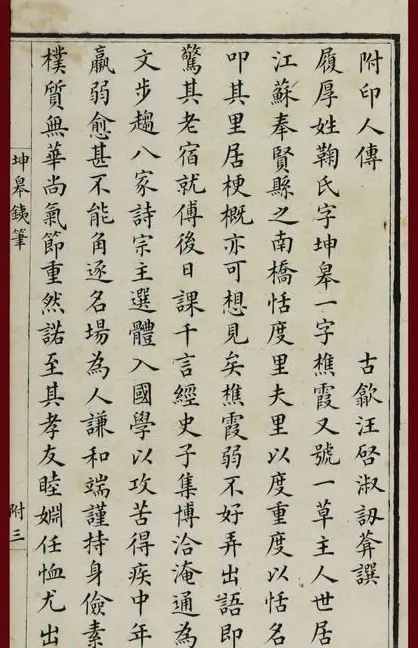 附印人傳
古歙汪啓淑訒葊譔
履厚姓鞠氏字坤皋一字樵霞又號一草主人世居
江蘇奉賢縣之南橋恬度里夫里以度重度以恬名
叩其里居梗概亦可想見矣樵霞弱不好弄出語即
驚其老宿就傅後日課千言經史子集博洽淹通為
文步趨八家詩宗主選體入國學以攻苦得疾中年
羸弱愈甚不能角逐名場為人謙和端謹持身儉素
樸質無華尚氣節重然諾至其孝友睦婣任恤尤出
坤皋銕筆
附三